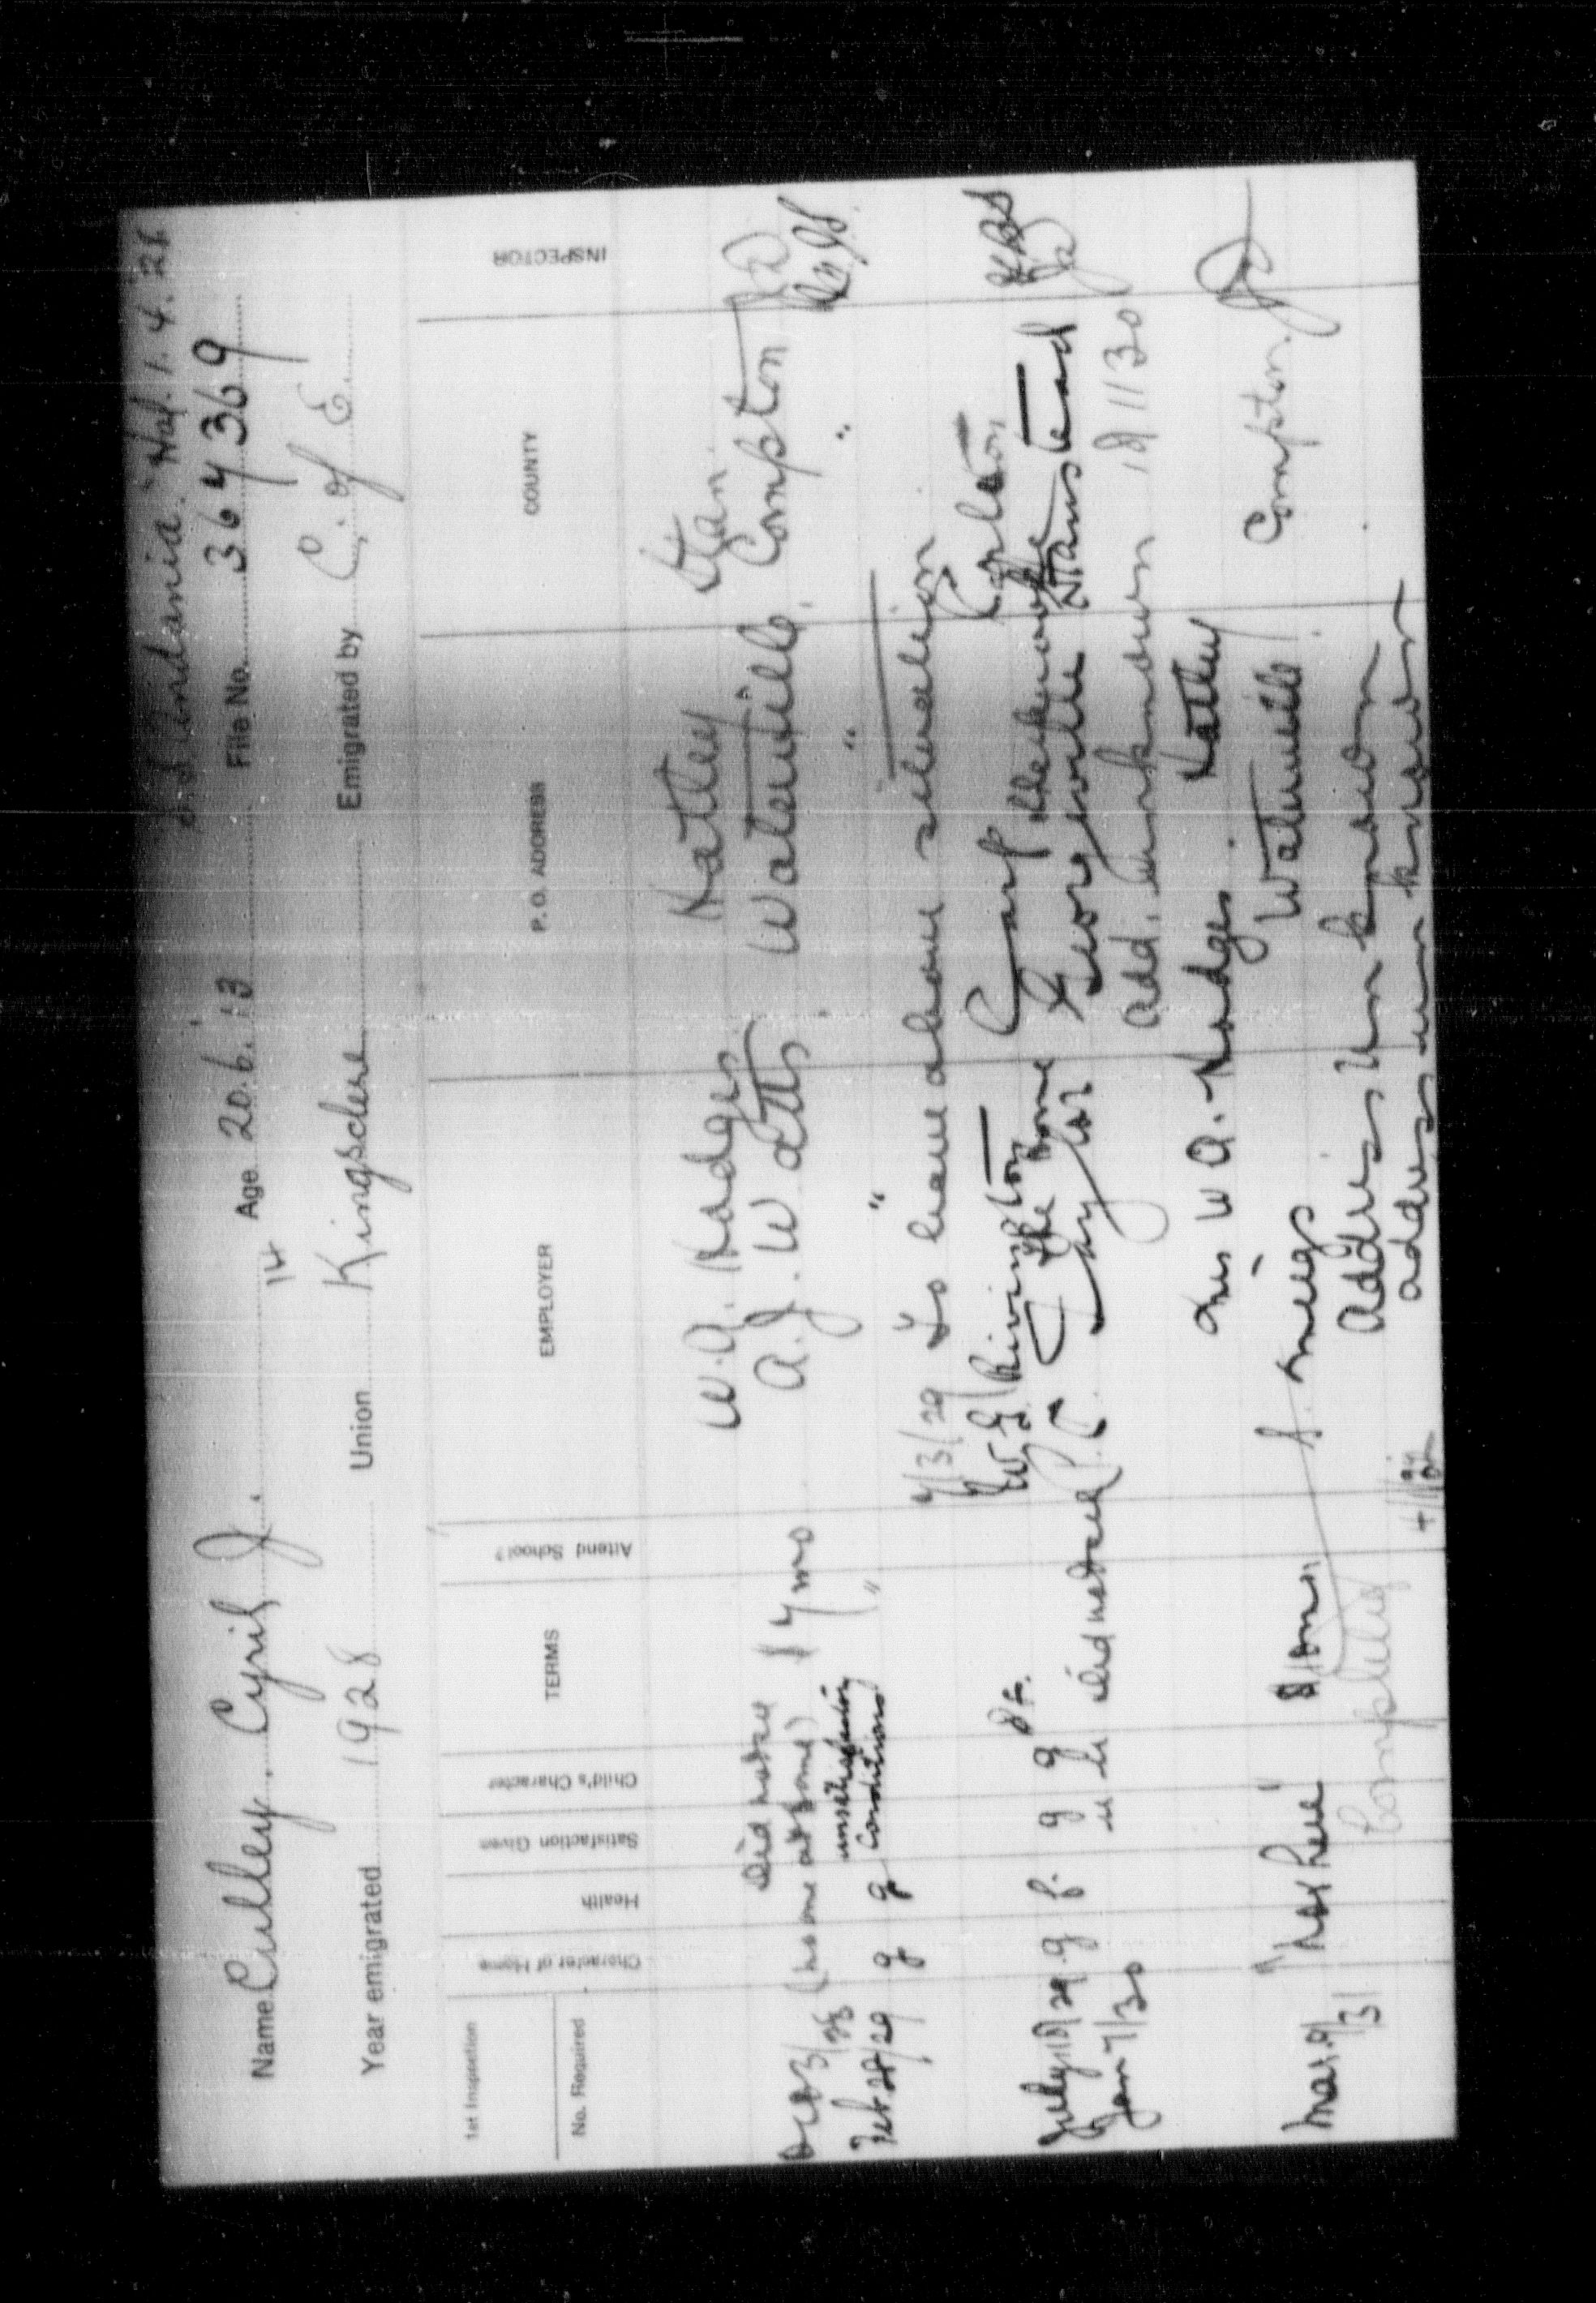 Hal. 1. 4. 28
Name Culley. Cyril J. Age 20.6.'13 File No. 364369
14
Year emigrated 1928 Union Kingsclere Emigrated by C. of E.
1st Inspection
No. Required
Character of Home
Health
Satisfaction Given
Child's Character
TERMS
Attend School?
EMPLOYER
P. O. ADDRESS
COUNTY
INSPECTOR
W. A. Hodges Hatley Stan.
Did not see
Oct 3/28 (no one at home) 14 mo A. J. Watts Waterville Compton
unsatisfactory
Feb 28/29 g g Conditions " " " "
4/3/29 To leave above situation
W. G. Rivington Carp Carleton
The Home Sherbrooke
July 18/29 g f. g g Georgeville Stanstead
Jan 7/30 u u did not see Add. unknown 18/1/30
Mrs W. A. Hodges Hatley
Mar. 9/31 "not here" Home S. Meigs Waterville Compton
Address Unknown
Completed address unknown